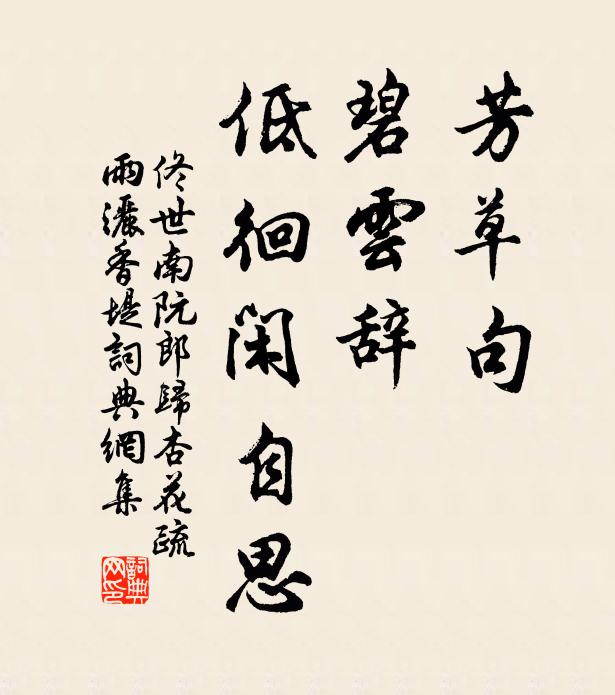 芳草句
碧雲辞
低徊閑自思
佟世南阮郎歸杏花疏
雨灑香堤詞典網集
詞典
网印